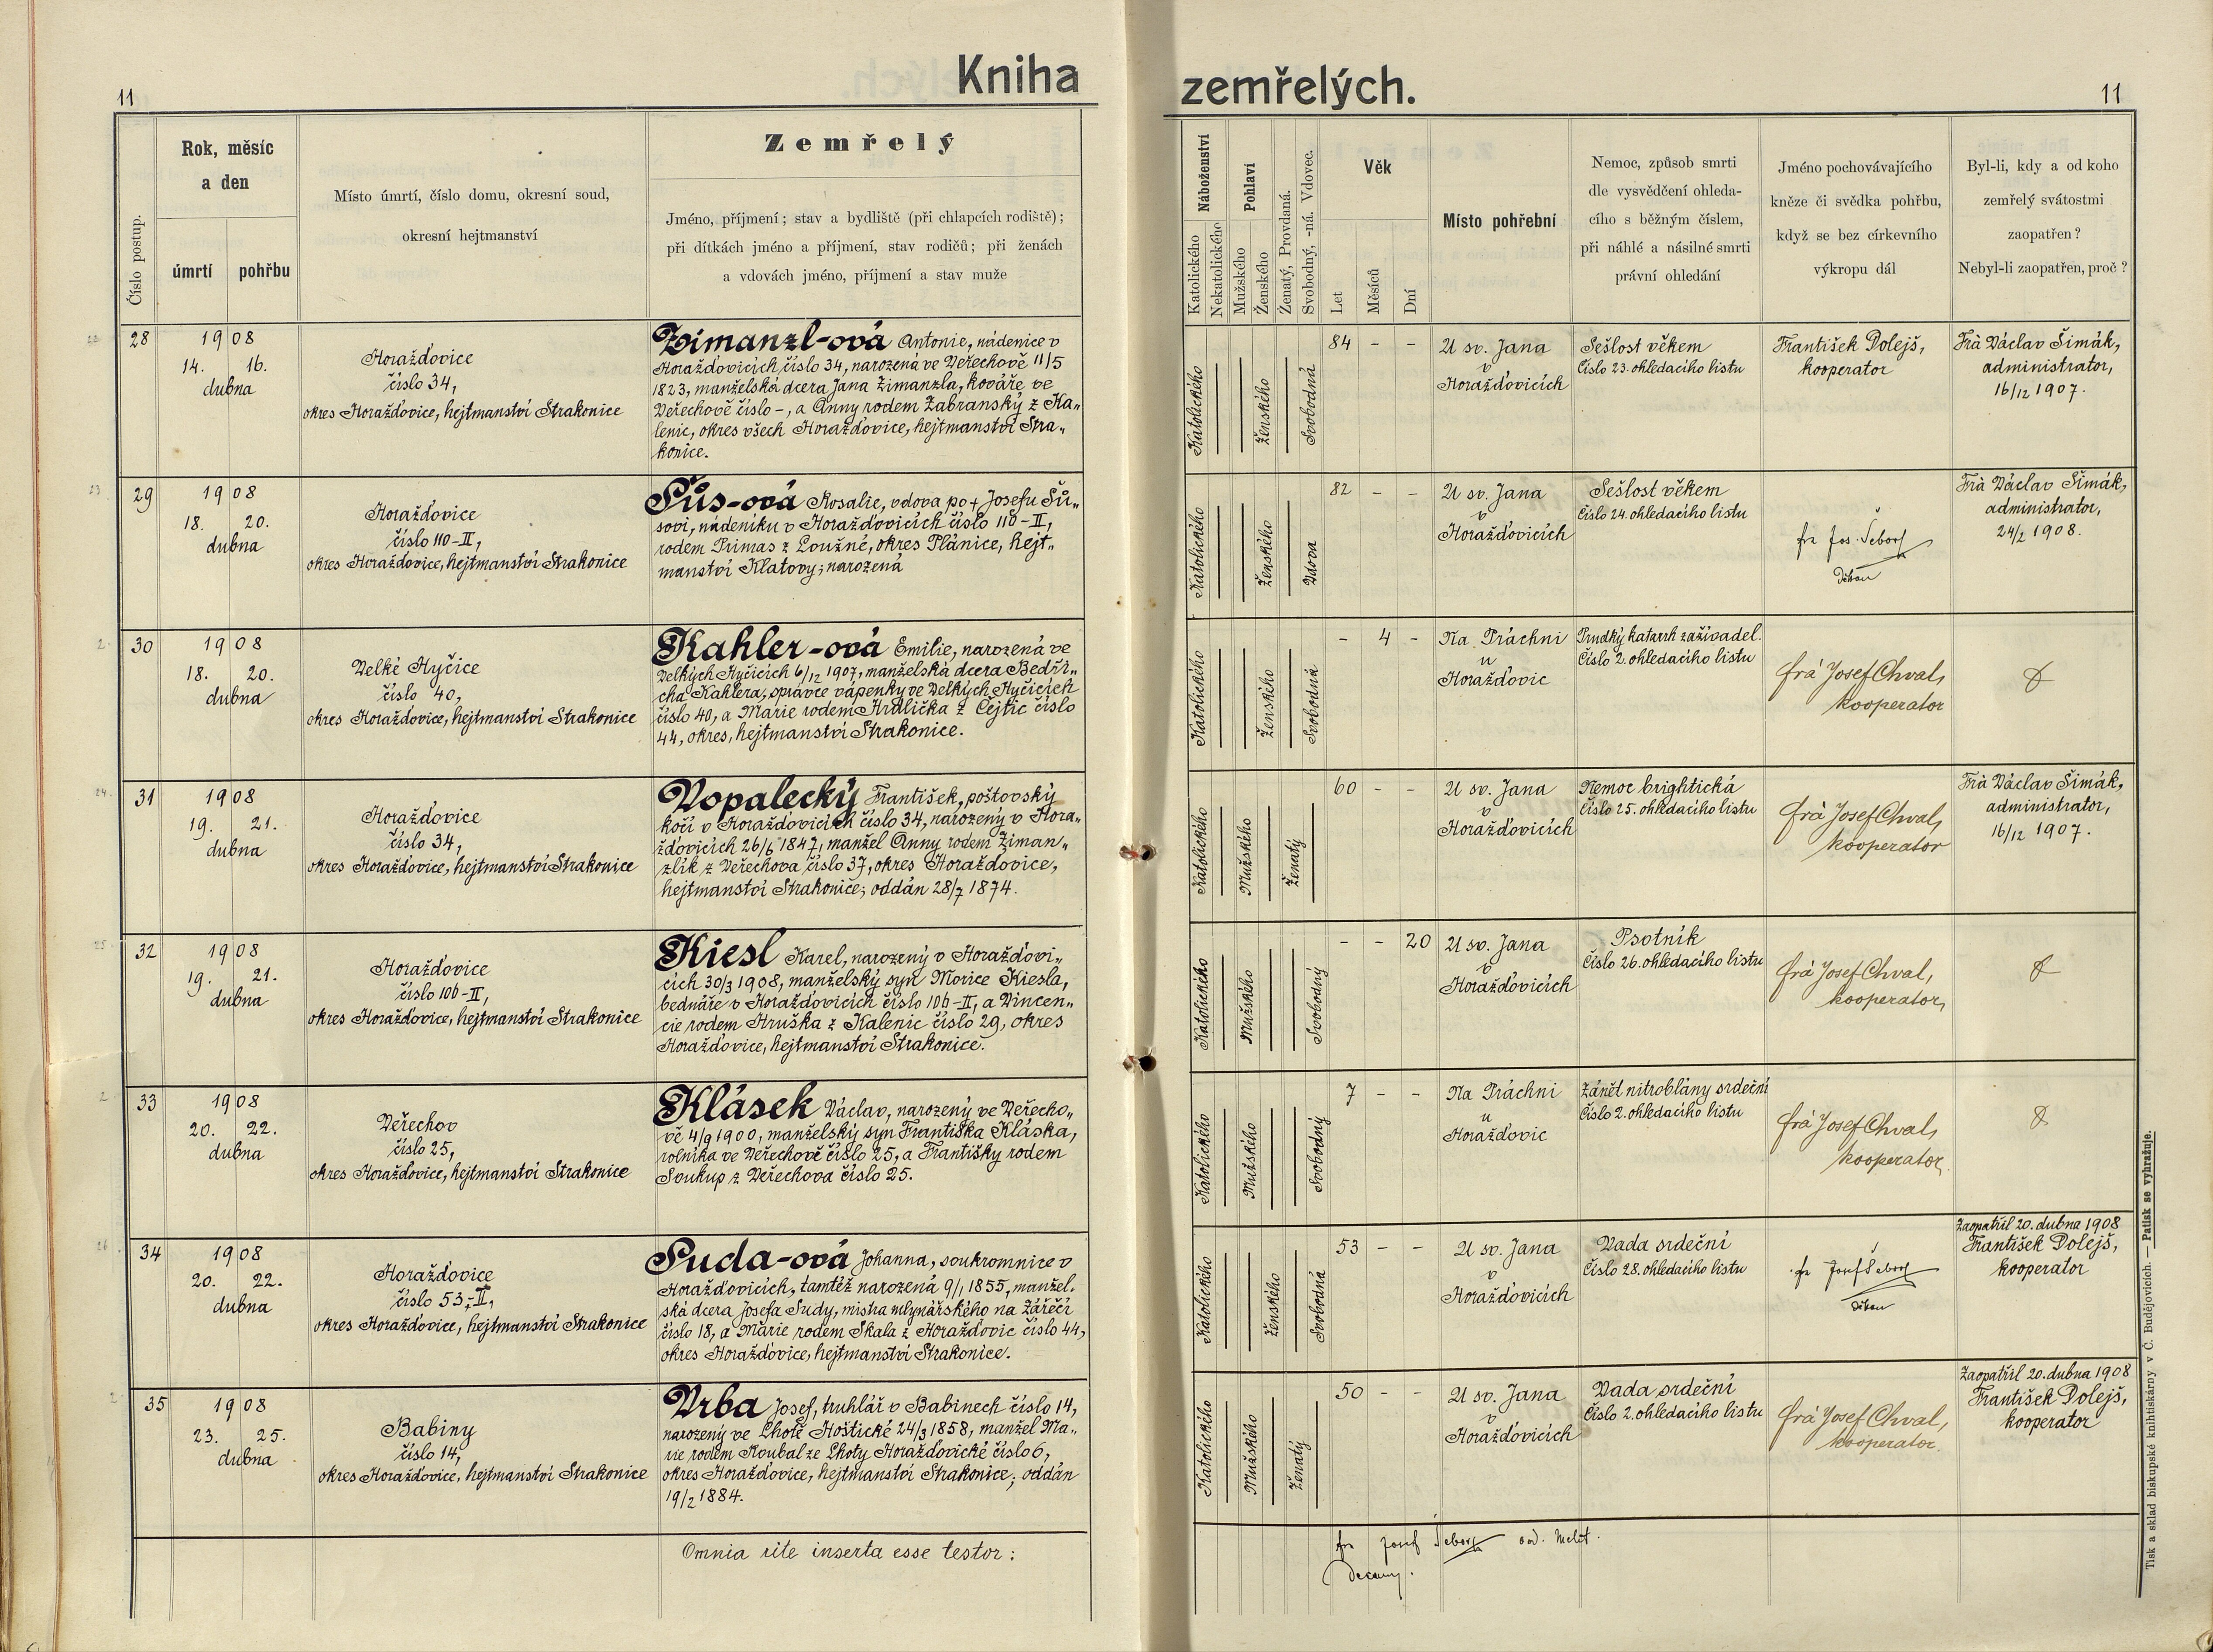 Kniha zemřelých.
11
11
Číslo postup.
Rok, měsíc
a den
úmrtí
pohřbu
Místo úmrtí, číslo domu, okresní soud,
okresní hejtmanství
Zemřelý
Jméno, příjmení; stav a bydliště (při chlapcích rodiště);
při dítkách jméno a příjmení, stav rodičů; při ženách
a vdovách jméno, příjmení a stav muže
Náboženství
Katolického
Nekatolického
Pohlaví
Mužského
Ženského
Ženatý, Provdaná.
Svobodný, -ná. Vdovec.
Věk
Let
Měsíců
Dní
Místo pohřební
Nemoc, způsob smrti
dle vysvědčení ohleda-
cího s běžným číslem,
při náhlé a násilné smrti
právní ohledání
Jméno pochovávajícího
kněze či svědka pohřbu,
když se bez církevního
výkropu dál
Byl-li, kdy a od koho
zemřelý svátostmi
zaopatřen?
Nebyl-li zaopatřen, proč?
28
1908
14. 16.
dubna
Horažďovice
číslo 34,
okres Horažďovice, hejtmanství Strakonice
Zimanzl-ová Antonie, nádenice v
Horažďovicích číslo 34, narozená ve Veřechově 11/5
1823, manželská dcera Jana Zimanzla, kováře ve
Veřechově číslo -, a Anny rodem Zabranský z Ka„
lenic, okres všech Horažďovice, hejtmanství Stra„
konice.
Katolického
Ženského
Svobodná
84 - -
U sv. Jana
v
Horažďovicích
Sešlost věkem
Číslo 23. ohledacího listu
František Dolejš,
kooperator
Frà Václav Šimák,
administrator,
16/12 1907.
29
1908
18. 20.
dubna
Horažďovice
číslo 110-II,
okres Horažďovice, hejtmanství Strakonice
Šůs-ová Rosalie, vdova po + Josefu Šů„
sovi, nádeníku v Horažďovicích číslo 110-II,
rodem Primas z Loužné, okres Plánice, hejt„
manství Klatovy; narozená
Katolického
Ženského
Vdova
82 - -
U sv. Jana
v
Horažďovicích
Sešlost věkem
Číslo 24. ohledacího listu
fra Jos. Šebor
Děkan
Frà Václav Šimák,
administrator,
24/2 1908.
30
1908
18. 20.
dubna
Velké Hyčice
číslo 40,
okres Horažďovice, hejtmanství Strakonice
Kahler-ová Emilie, narozená ve
Velkých Hyčicích 6/12 1907, manželská dcera Bedři„
cha Kahlera, správce vápenky ve Velkých Hyčicích
číslo 40, a Marie rodem Hrdlička z Čejtic číslo
44, okres, hejtmanství Strakonice.
Katolického
Ženského
Svobodná
- 4 -
Na Práchni
u
Horažďovic
Prudký katarrh zažívadel.
Číslo 2. ohledacího listu
frà Josef Chval,
kooperator
31
1908
19. 21.
dubna
Horažďovice
číslo 34,
okres Horažďovice, hejtmanství Strakonice
Vopalecký František, poštovský
kočí v Horažďovicích číslo 34, narozený v Hora„
žďovicích 26/6 1847, manžel Anny rodem Ziman„
zlik z Veřechova číslo 37, okres Horažďovice,
hejtmanství Strakonice; oddán 28/7 1874.
Katolického
Mužského
Ženatý
60 - -
U sv. Jana
v
Horažďovicích
Nemoc brightická
Číslo 25. ohledacího listu
frà Josef Chval,
kooperator
Frà Václav Šimák,
administrator,
16/12 1907.
32
1908
19. 21.
dubna
Horažďovice
číslo 106-II,
okres Horažďovice, hejtmanství Strakonice
Kiesl Karel, narozený v Horažďovi„
cích 30/3 1908, manželský syn Morice Kiesla,
bednáře v Horažďovicích číslo 106-II, a Vincen„
cie rodem Hruška z Kalenic číslo 29, okres
Horažďovice, hejtmanství Strakonice.
Katolického
Mužského
Svobodný
- - 20
U sv. Jana
v
Horažďovicích
Psotník
Číslo 26. ohledacího listu
frà Josef Chval,
kooperator,
33
1908
20. 22.
dubna
Veřechov
číslo 25,
okres Horažďovice, hejtmanství Strakonice
Klásek Václav, narozený ve Veřecho„
vě 4/9 1900, manželský syn Františka Kláska,
rolníka ve Veřechově číslo 25, a Františky rodem
Soukup z Veřechova číslo 25.
Katolického
Mužského
Svobodný
7 - -
Na Práchni
u
Horažďovic
Zánět nitroblány srdeční
Číslo 2. ohledacího listu
frà Josef Chval,
kooperator.
34
1908
20. 22.
dubna
Horažďovice
číslo 53-II,
okres Horažďovice, hejtmanství Strakonice
Suda-ová Johanna, soukromnice v
Horažďovicích, tamtéž narozená 9/1 1855, manžel.
ská dcera Josefa Sudy, mistra mlynářského na Zářečí
číslo 18, a Marie rodem Skala z Horažďovic číslo 44,
okres Horažďovice, hejtmanství Strakonice.
Katolického
Ženského
Svobodná
53 - -
U sv. Jana
v
Horažďovicích
Vada srdeční
Číslo 28. ohledacího listu
fra Josef Šebor
Děkan
Zaopatřil 20. dubna 1908
František Dolejš,
kooperator
35
1908
23. 25.
dubna
Babiny
číslo 14,
okres Horažďovice, hejtmanství Strakonice
Vrba Josef, truhlář v Babinech číslo 14,
narozený ve Lhotě Hoštické 24/3 1858, manžel Ma„
rie rodem Koubal ze Lhoty Horažďovické číslo 6,
okres Horažďovice, hejtmanství Strakonice; oddán
19/2 1884.
Katolického
Mužského
Ženatý
50 - -
U sv. Jana
v
Horažďovicích
Vada srdeční
Číslo 2. ohledacího listu
frà Josef Chval,
kooperator.
Zaopatřil 20. dubna 1908
František Dolejš,
kooperator
Omnia rite inserta esse testor:
fra Josef Šebor ord. Melit.
Decanus.
Tisk a sklad biskupské knihtiskárny v Č. Budějovicích. — Patisk se vyhražuje.